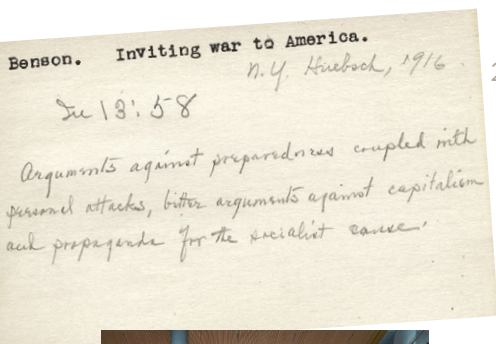 Benson. Inviting war to America.
N.Y. Huebsch, 1916.
13:58
Arguments against preparedness coupled with
personal attacks, bitter arguments against capitalism
and propaganda for the socialist cause.